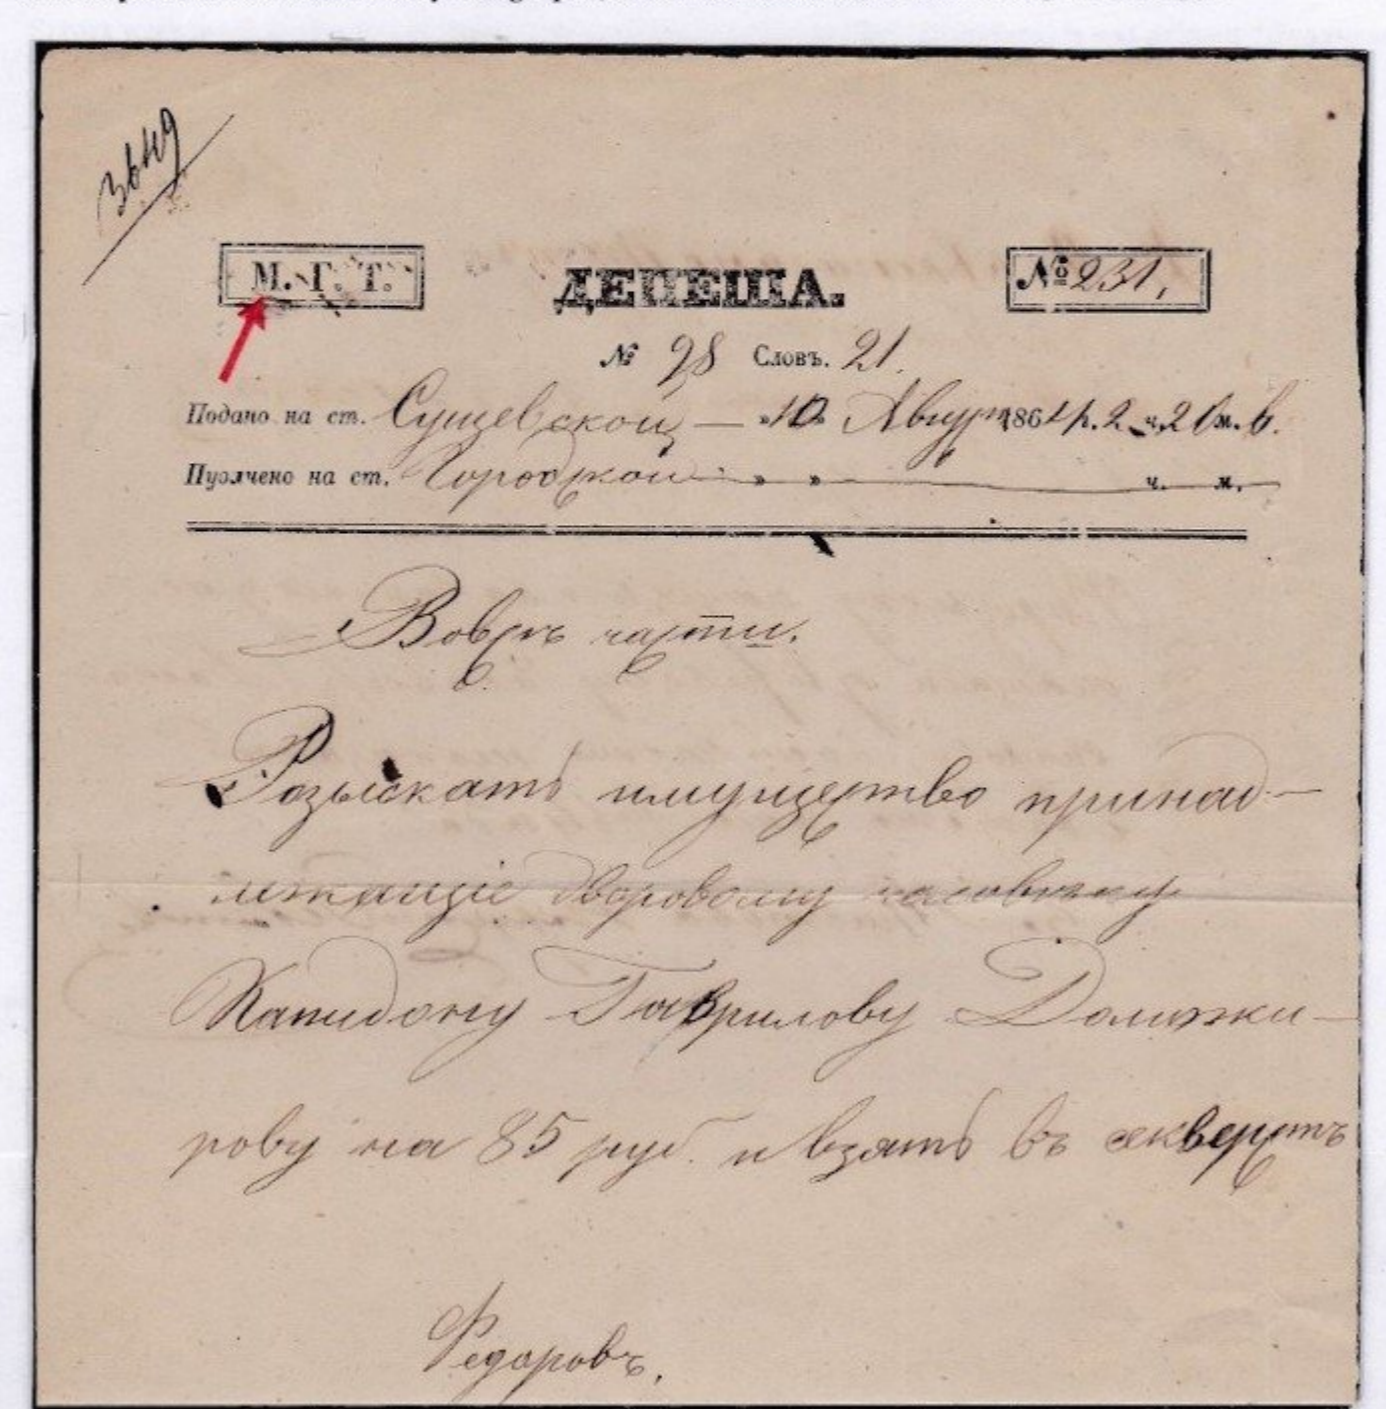 3649
М. Г. Т.
ДЕПЕША.
№ 231,
№ 98 Словъ. 21.
Подано на ст. Сущевской — » 10 » Август 1864 г. 2 ч. 20 м. в.
Пуолчено на ст. Городской » » ч. м.
Вовсѣ части.
Розыскать имущество принад-
лежащіе дворовому человѣку
Капидону Гаврилову Должи-
рову на 85 руб. и взять въ секверстъ
Федоровъ.